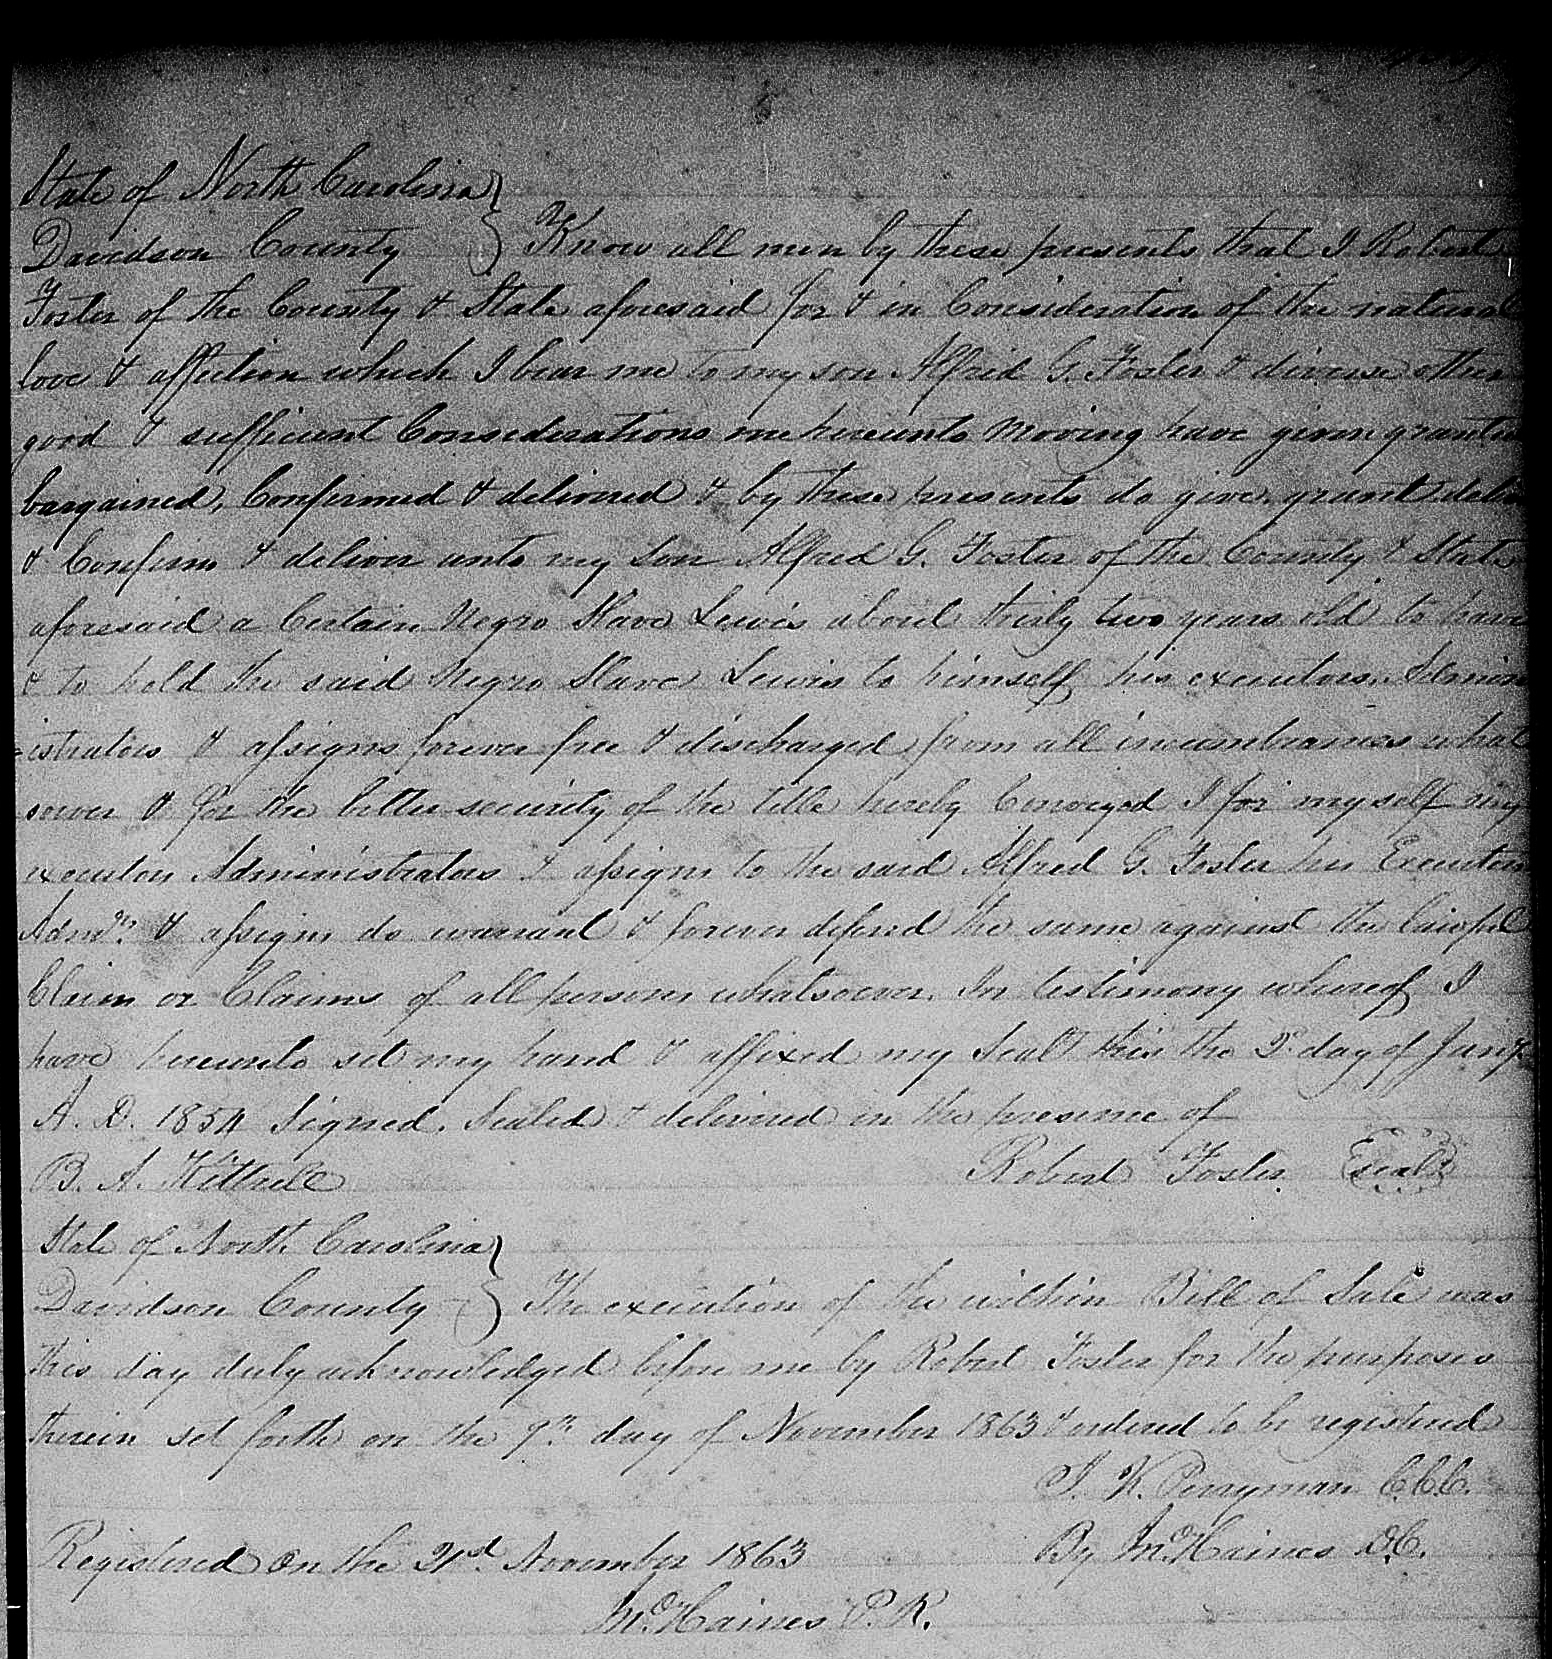 State of North Carolina }
Davidson County } Know all men by these presents that I Robert
Foster of the County & State aforesaid for & in Consideration of the natural
love & affection which I bear me to my son Alfred G. Foster & diverse other
good & sufficient Considerations me hereunto moving have given granted
bargained, Confirmed & delivered & by these presents do give, grant
& Confirm & deliver unto my son Alfred G. Foster of the County & State
aforesaid a Certain Negro Slave Lewis about thirty two years old to have
& to hold the said Negro Slave Lewis to himself his executors, Admin
=istrators & assigns forever free & discharged from all incumbrances what
soever & for the better security of the title hereby Conveyed I for myself my
executors Administrators & assigns to the said Alfred G. Foster his Executors
Admrs. & assigns do warrant & forever defend the same against the lawful
Claim or Claims of all persons whatsoever. In testimony whereof I
have hereunto set my hand & affixed my Seal this the 2d day of
A. D. 1854 Signed, Sealed & delivered in the presence of
B. A. Kittrell Robert Foster {seal}
State of North Carolina }
Davidson County } The execution of the within Bill of Sale was
this day duly acknowledged before me by Robert Foster for the purposes
therein set forth on the 9th day of November 1863 & ordered to be registered
I. K. Perryman C.C.C.
Registered on the 21st November 1863 By Haines D.C.
Haines P. R.